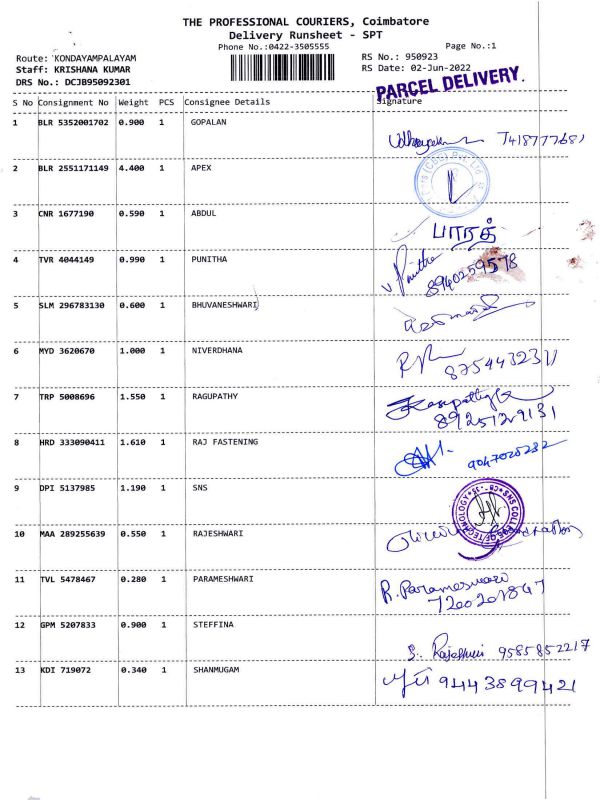 THE PROFESSIONAL COURIERS, Coimbatore
Delivery Runsheet - SPT
Phone No.:0422-3505555
Page No.:1
Route: KONDAYAMPALAYAM
RS No.: 950923
Staff: KRISHANA KUMAR
RS Date: 02-Jun-2022
DRS No.: DCJB95092301
PARCEL DELIVERY.
S No Consignment No Weight PCS Consignee Details Signature
1 BLR 5352001702 0.900 1 GOPALAN
7418777681
2 BLR 2551171149 4.400 1 APEX
3 CNR 1677190 0.590 1 ABDUL
பாரத்
4 TVR 4044149 0.990 1 PUNITHA
Punitha
8940259578
5 SLM 296783130 0.600 1 BHUVANESHWARI
6 MYD 3620670 1.000 1 NIVERDHANA
8754432311
7 TRP 5008696 1.550 1 RAGUPATHY
8925129131
8 HRD 333090411 1.610 1 RAJ FASTENING
9047020282
9 DPI 5137985 1.190 1 SNS
SNS COLLEGE OF TECHNOLOGY
10 MAA 289255639 0.550 1 RAJESHWARI
11 TVL 5478467 0.280 1 PARAMESHWARI
R. Parameswari
7200201847
12 GPM 5207833 0.900 1 STEFFINA
S. Rajeshwari 9585852217
13 KDI 719072 0.340 1 SHANMUGAM
9443899421